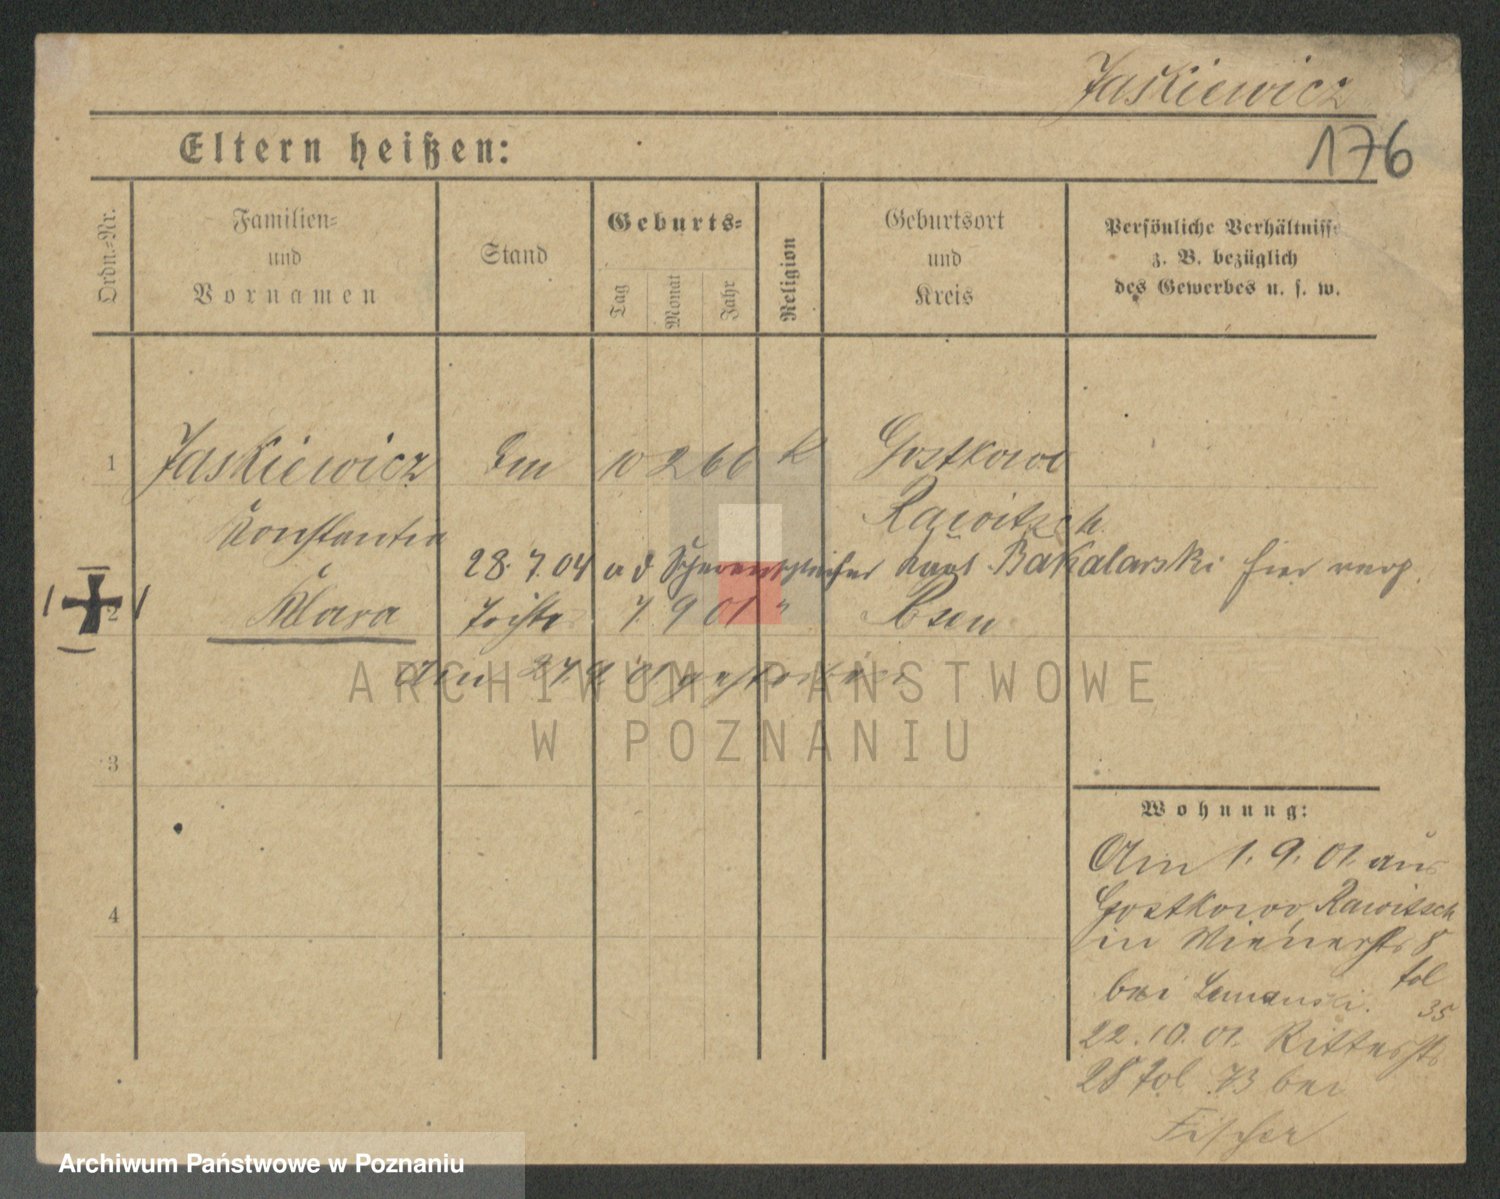 Jaskiewicz
176
Eltern heißen:
Ordn.-Nr.
Familien-
und
Vornamen
Stand
Geburts-
Tag
Monat
Jahr
Religion
Geburtsort
und
Kreis
Persönliche Verhältnisse
z. B. bezüglich
des Gewerbes u. s. w.
1 Jaskiewicz 10 2 66 K Gostkowo
Konstantia Rawitsch
28.7.04 a d Scherenschleifer Karl Bakalarski hier verh.
2 Klara Tochter 7. 9 01 " Posen
Am 27.9.01 gestorben
ARCHIWUM PAŃSTWOWE
W POZNANIU
3
Wohnung:
Am 1. 9. 01. aus
Gostkowo, Rawitsch
4
in Wienerstr 8
bei Lemanski. fol
35
22.10.01. Ritterstr
28 fol 73 bei
Fischer
Archiwum Państwowe w Poznaniu